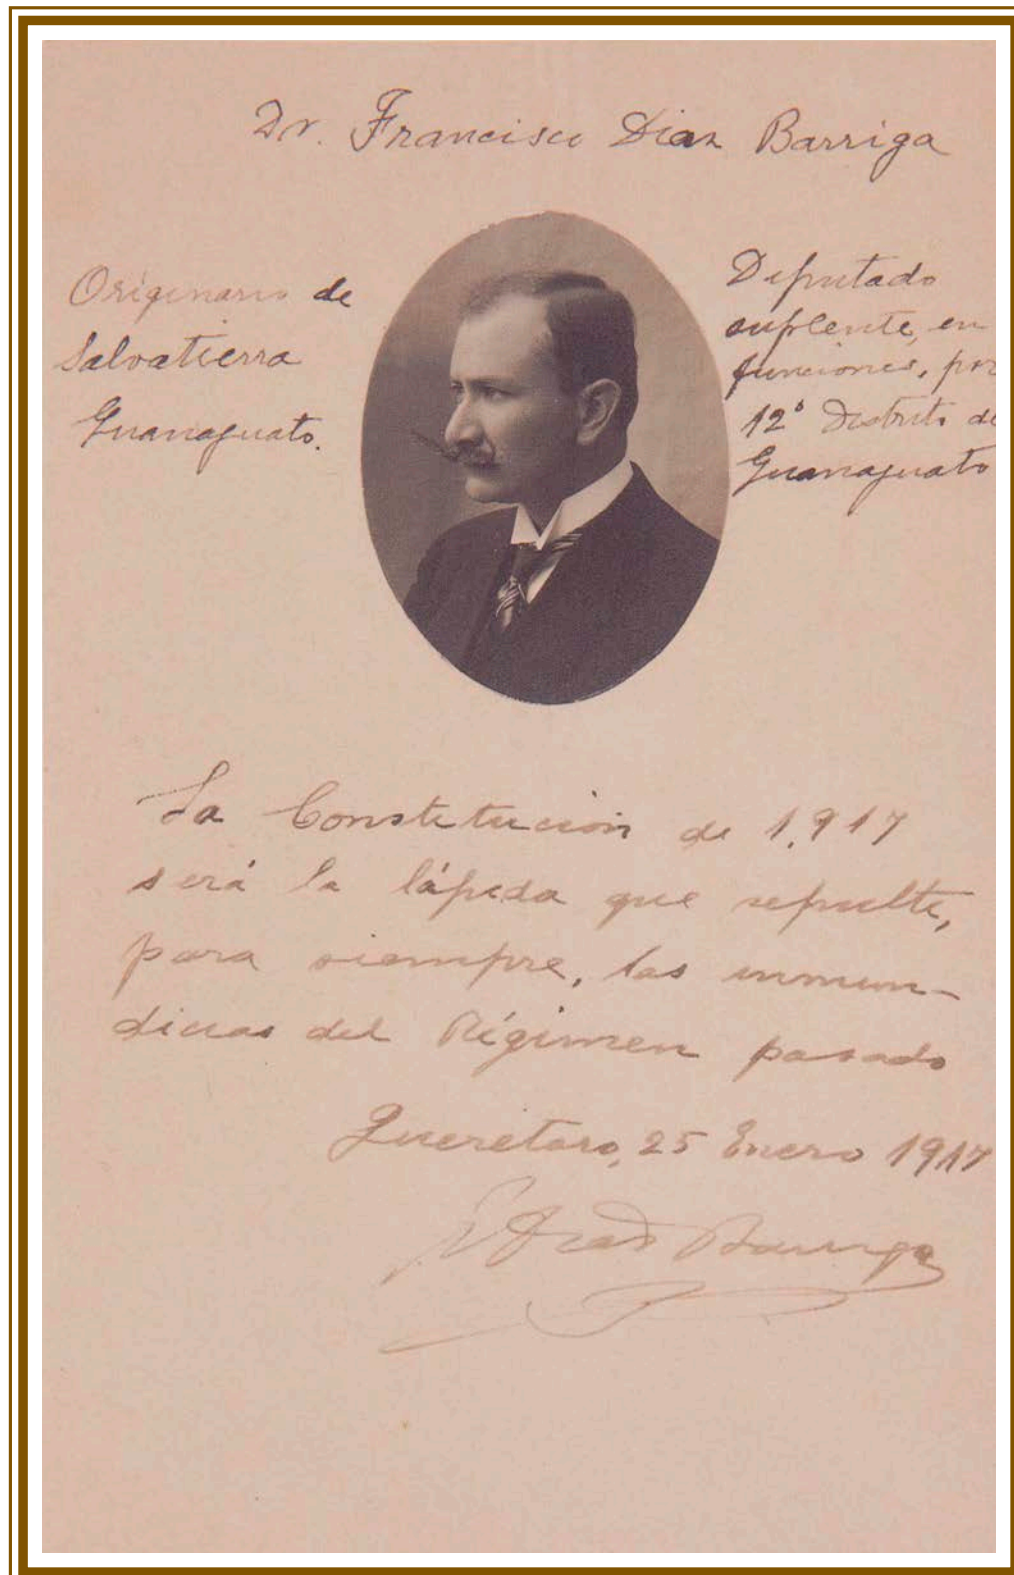 Dr. Francisco Diaz Barriga
Originario de
Salvatierra
Guanajuato.
Diputado
suplente, en
funciones, por
12º Distrito de
Guanajuato
La Constitución de 1,917
será la lápida que sepulte,
para siempre, las inmun-
dicias del Régimen pasado
Querétaro, 25 Enero 1917
Diaz Barriga